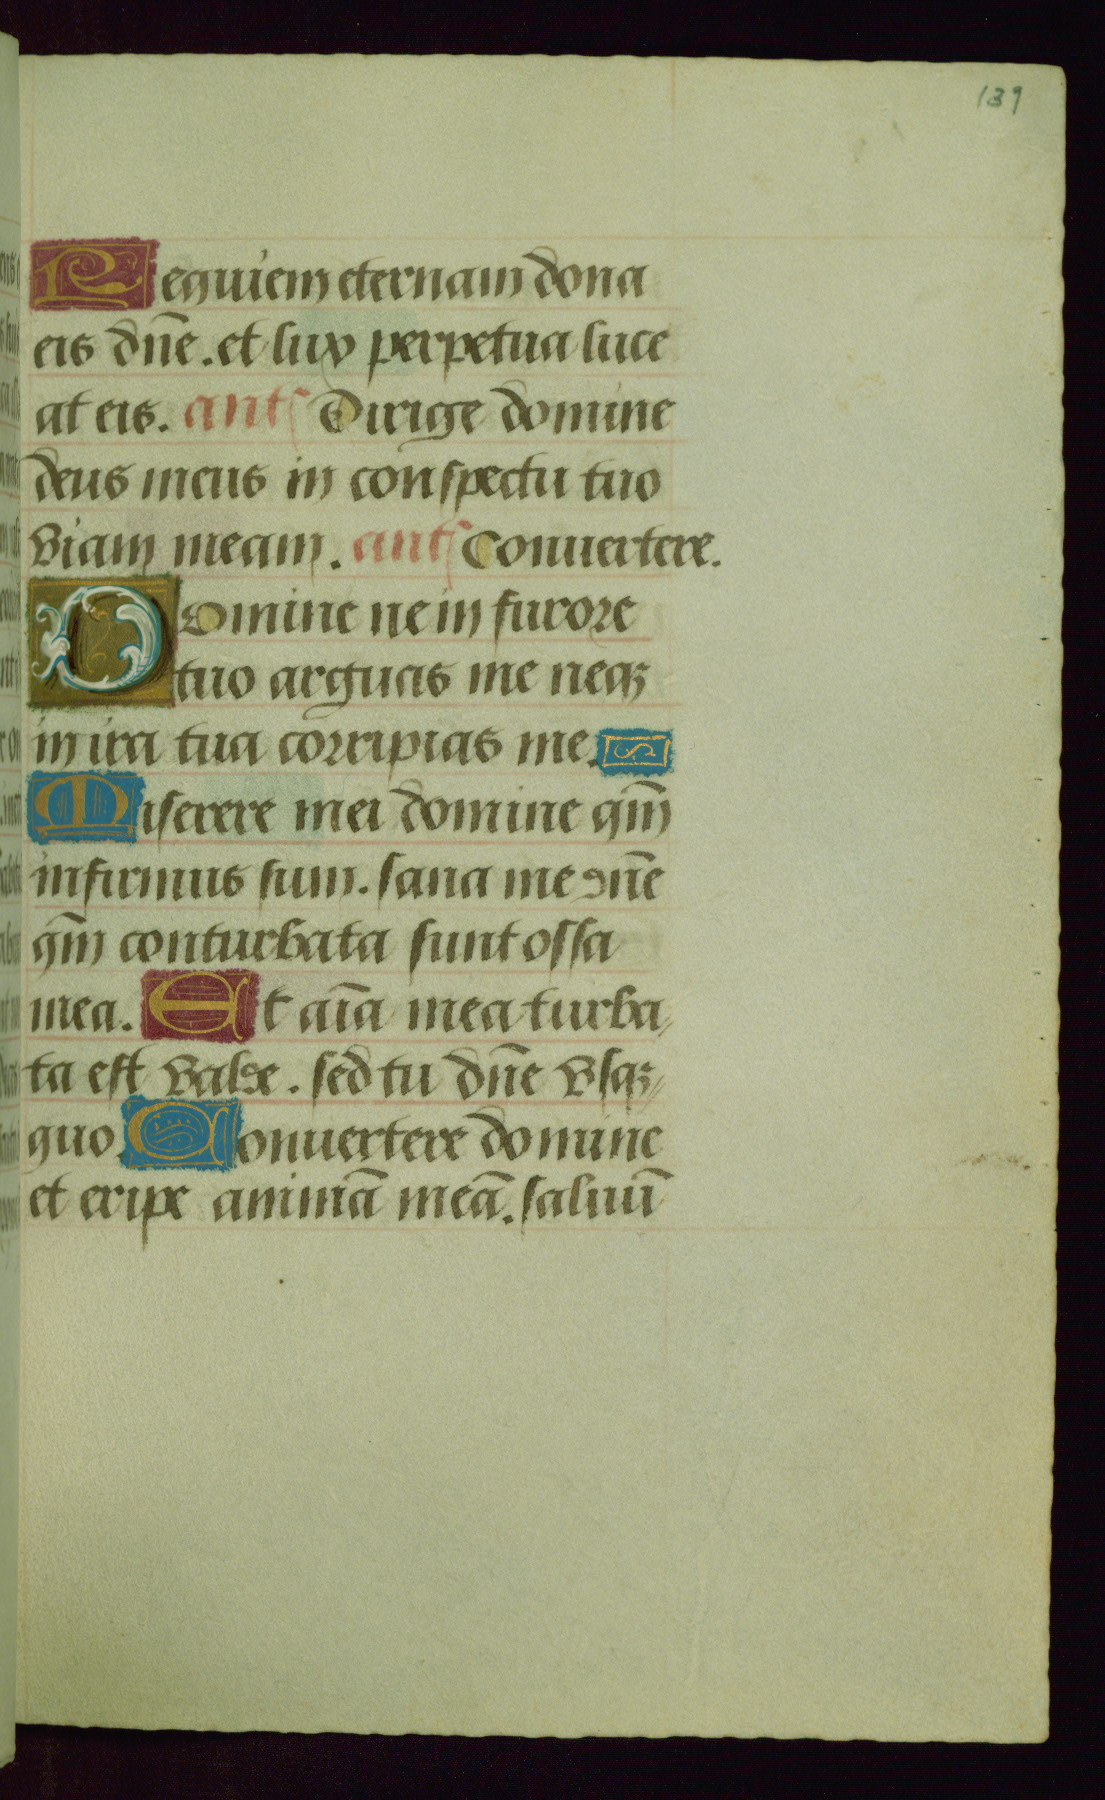 139
Requiem eternam dona
eis dn̄e. et lux perpetua luce
at eis. antſ Dirige domine
deus meus in conspectu tuo
viam meam. antſ Conuertere.
Domine ne in furore
tuo arguas me neqꝫ
in ira tua corripias me.
Miserere mei domine qm̄
infirmus sum. sana me dn̄e
qm̄ conturbata sunt ossa
mea. Et aīa mea turba
ta est valde. sed tu dn̄e vsqꝫ
quo. Conuertere domine
et eripe animā meā. saluū